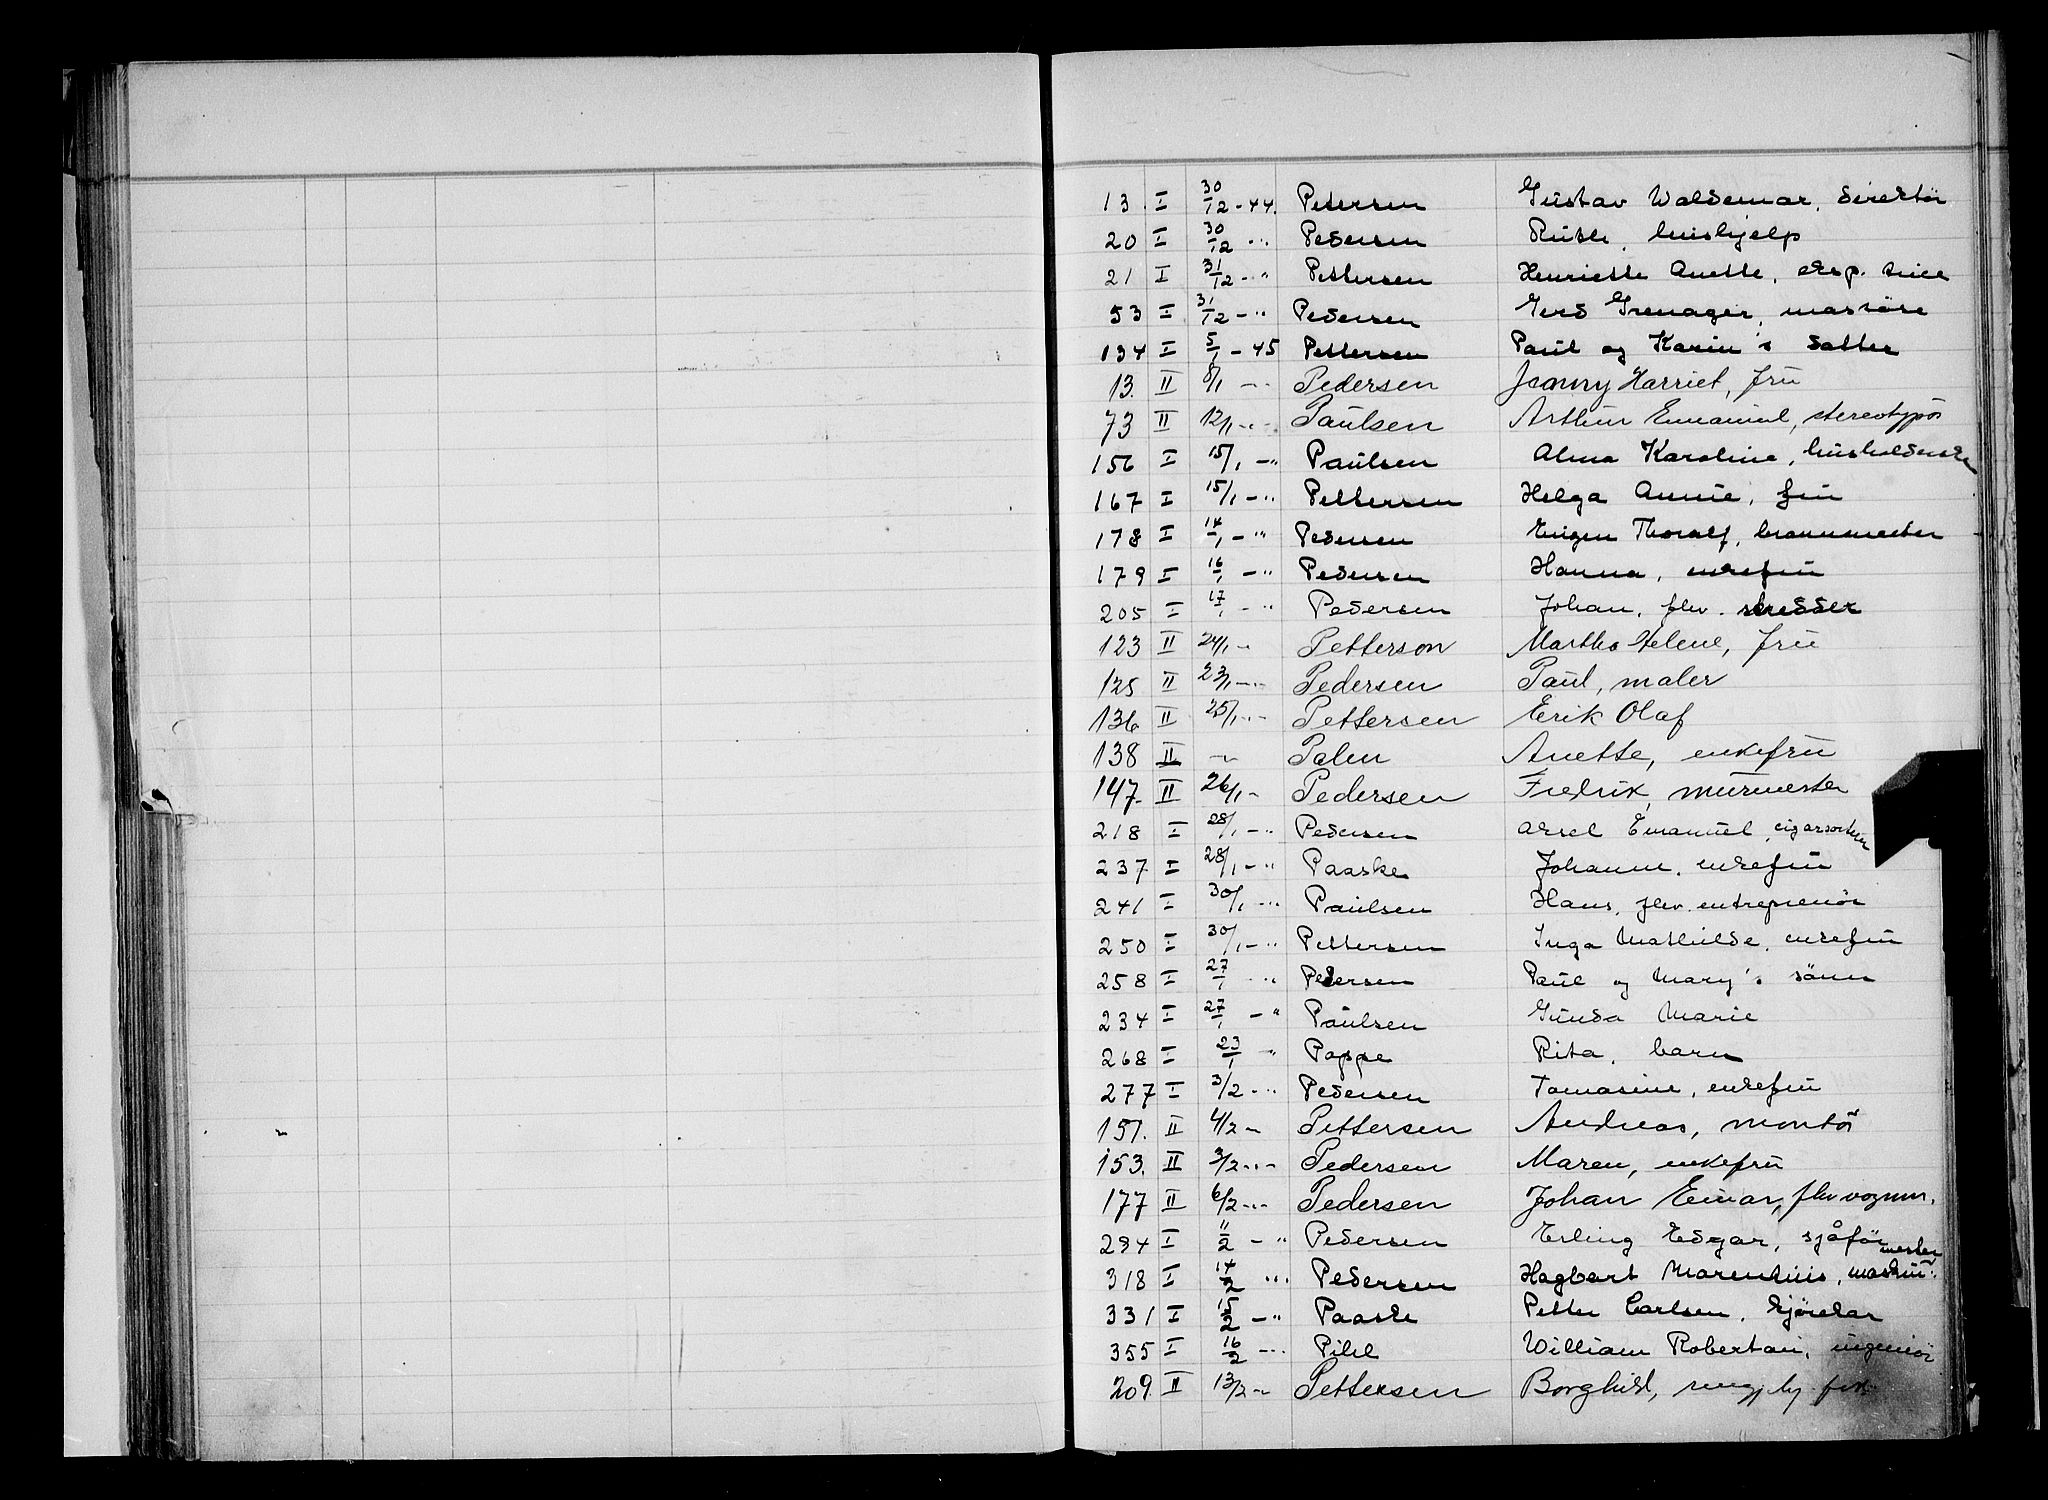 13. I 30/12-44. Petersen Gustav Waldemar, direktør
20 I 30/12 -" Pedersen Ruth, hushjelp
21 I 31/12 -" Pettersen Henriette Anette, eksp. trice
53 I 31/12 -" Pedersen Gerd Grenager, massöse
134 I 5/1 - 45 Pettersen Paul og Karin's datter
13. II 8/1 -- Pedersen Jenny Harriet, fru
73 II 12/1 -- Paulsen Arthur Emanuel, stereotypør
156 I 15/1 -" Paulsen Alma Karoline, husholderske
167 I 15/1 -" Pettersen Helga Annie, fru
178 I 14/1 -" Pedersen Eugen Thoralf, brannmester
179 I 16/1 -" Pedersen Hanna, enkefru
205 I 17/1 -" Pedersen Johan, fhv. skredder
123 II 24/1 - Petterson Martha Helene, fru
125 II 23/1 -- Pedersen Paul, maler
136 II 25/1 -- Pettersen Erik Olaf
138 II -"- Palm Anette, enkefru
147. II 26/1 - Pedersen Fredrik, murmester
218 I 28/1 -" Pedersen Aksel Emanuel, cigarsorterer
237 I 28/1 -" Paaske Johanne, enkefru
241 I 30/1 -" Paulsen Hans, fhv. entreprenør
250 I 30/1 -" Pettersen Inga Mathilde, enkefru
258 I 27/1 -" Pedersen Paul og Mary's sønn
234 I 27/1 -" Paulsen Gunda Marie
268 I 23/1 " Poppe Rita, barn
277 I 3/2 -" Pedersen Tomasine, enkefru
151. II 4/2 - Pettersen Andreas, montør
153. II 3/2 -- Pedersen Maren, enkefru
177 II 6/2 -- Pedersen Johan Einar, fhv vognm.
294 I 11/2 -" Pedersen Erling Edgar, sjåfør
318 I 14/2 -" Pedersen Hagbart Marenius, maskinmester
331 I 15/2 -" Paaske Petter Carlsen, kjørekar
355 I 16/2 -" Pihl William Robertan, ingeniør
209. II 13/2 - Pettersen Borghild,